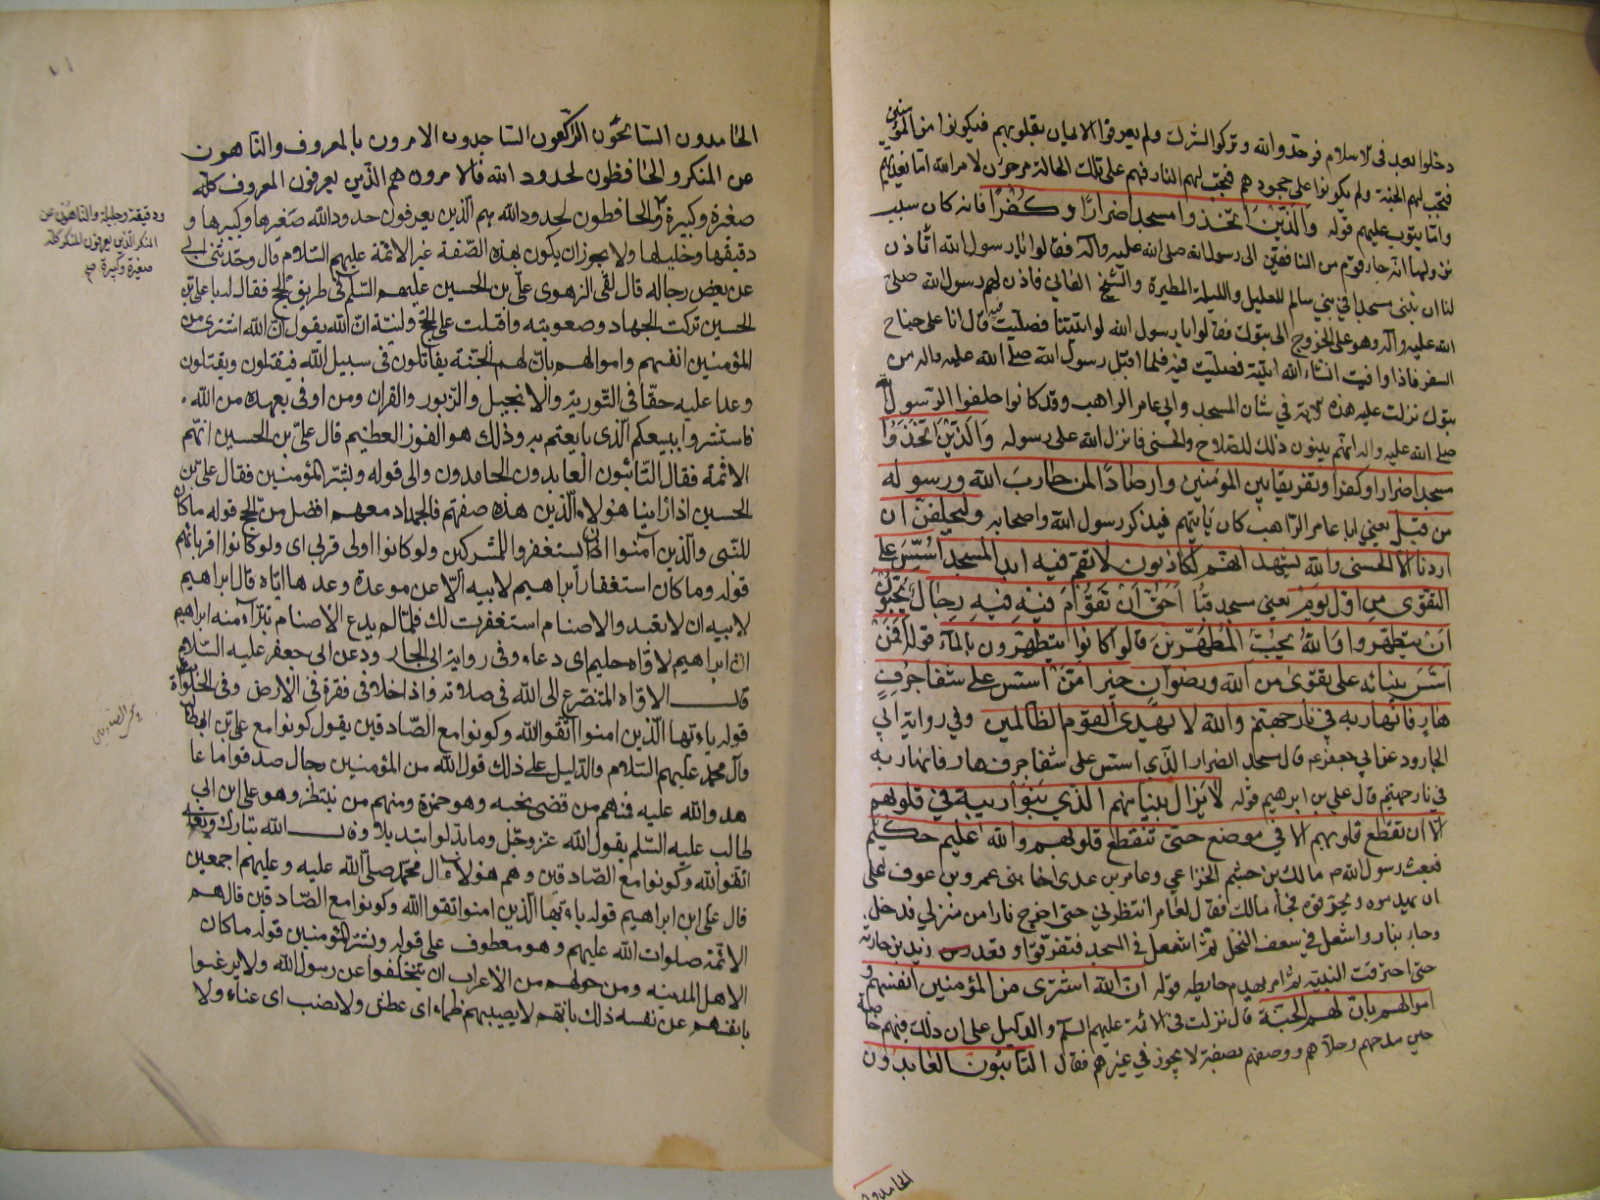 دخلوا بعد فى الاسلام فوحدوا الله وتركوا الشرك ولم يعرفوا الايمان بقلوبهم فيكونوا من المؤمنين
فتجب لهم الجنة ولم يكونوا على جحودهم فتجب لهم النار فهم على تلك الحالة مرجون لامر الله اما يعذبهم
واما يتوب عليهم قوله والذين اتخذوا مسجدا ضرارا وكفرا فانه كان سبب
نزولها انه جاء قوم من المنافقين الى رسول الله صلى الله عليه وآله فقالوا يا رسول الله اتأذن
لنا ان نبنى مسجدا في بني سالم للعليل والليلة المطيرة والشيخ الفاني فاذن لهم رسول الله صلى
الله عليه وآله وهو على الخروج الى تبوك فقالوا يا رسول الله لو اتيتنا فصليت فيه قال انا على جناح
السفر فاذا وافيت انشاء الله اتيته فصليت فيه فلما اقبل رسول الله صلى الله عليه واله من
تبوك نزلت عليه هذه الاية في شان المسجد وابي عامر الراهب وقد كانوا حلفوا لرسول الله
صلى الله عليه واله انهم يبنون ذلك للصلاح والحسنى فانزل الله على رسوله والذين اتخذوا
مسجدا ضرارا وكفرا وتفريقا بين المؤمنين وارصادا لمن حارب الله ورسوله
من قبل يعني ابا عامر الراهب كان يأتيهم فيذكر رسول الله واصحابه وليحلفن ان
اردنا الا الحسنى والله يشهد انهم لكاذبون لا تقم فيه ابدا لمسجد اسس على
التقوى من اول يوم يعني مسجد قبا احق ان تقوم فيه فيه رجال يحبون
ان يتطهروا والله يحب المطهرين قال كانوا يتطهرون بالماء قوله افمن
اسس بنيانه على تقوى من الله ورضوان خير امن اسس على شفا جرف
هار فانهار به في نار جهنم والله لا يهدي القوم الظالمين وفي رواية ابي
الجارود عن ابي جعفر ع قال مسجد الضرار الذي اسس على شفا جرف هار فانهار به
في نار جهنم قال علي بن ابرهيم قوله لا يزال بنيانهم الذي بنوا ريبة في قلوبهم
الا ان تقطع قلوبهم الا في موضع حتى تنقطع قلوبهم والله عليم حكيم
فبعث رسول الله ص مالك بن خيثم الخزاعي وعامر بن عدي اخا بنى عمرو بن عوف على
ان يهدموه ويحرقوه فجاء مالك فقال لعامر انتظرني حتى اخرج نارا من منزلي فدخل
وجاء بنار واشعل في سعف النخل ثم اشعل في المسجد فتفرقوا وقعد زيد بن حارثة
حتى احترقت البنية ثم امر بهدم حايطه قوله ان الله اشترى من المؤمنين انفسهم و
اموالهم بان لهم الجنة قال نزلت في الائمة عليهم السلم والدليل على ان ذلك فيهم خاصة
حين مدحهم وحلاهم ووصفهم بصفة لا يجوز في غيرهم فقال التائبون العابدون
الحامدون
الحامدون السائحون الراكعون الساجدون الامرون بالمعروف والناهون
عن المنكر والحافظون لحدود الله فالامرون هم الذين يعرفون المعروف كله
صغره وكبيره والحافظون لحدود الله هم الذين يعرفون حدود الله صغرها وكبيرها و
دقيقها وجليلها ولا يجوز ان يكون بهذه الصفة غير الائمة عليهم السلام قال وحدثني ابي
عن بعض رجاله قال لقى الزهرى على بن الحسين عليهم السلم فى طريق الحج فقال له يا على بن
الحسين تركت الجهاد وصعوبته واقبلت على الحج ولينته ان الله يقول ان الله اشترى من
المؤمنين انفسهم واموالهم بان لهم الجنة يقاتلون فى سبيل الله فيقتلون ويقتلون
وعدا عليه حقا فى التورية والانجيل والزبور والقران ومن اوفى بعهده من الله
فاستبشروا ببيعكم الذى بايعتم به وذلك هو الفوز العظيم قال على بن الحسين انهم
الائمة فقال التائبون العابدون الحامدون والى قوله وبشر المؤمنين فقال على بن
الحسين اذا راينا هؤلاء الذين هذه صفتهم فالجهاد معهم افضل من الحج قوله ما كان
للنبى والذين آمنوا ان يستغفروا للمشركين ولو كانوا اولى قربى اى ولو كانوا اقرباءهم
قوله وما كان استغفار ابراهيم لابيه الا عن موعدة وعدها اياه قال ابراهيم
لابيه ان لا تعبد والاصنام استغفرت لك فلما لم يدع الاصنام تبرأ منه ابراهيم
ان ابراهيم لاواه حليم اى دعاء وفى رواية ابى الجارود عن ابى جعفر عليه السلام
قال الاواه المتضرع الى الله فى صلاته واذا خلا فى قفرة فى الارض وفى الخلوات
قوله ياءيها الذين امنوا اتقوا الله وكونوا مع الصادقين يقول كونوا مع على بن ابيطالب
وآل محمد عليهم السلام والدليل على ذلك قول الله من المؤمنين رجال صدقوا ما عا
هدوا الله عليه فمنهم من قضى نحبه وهو حمزة ومنهم من ينتظر وهو على ابن ابى
طالب عليه السلم يقول الله عز وجل وما بدلوا تبديلا وقال الله تبارك وتعالى
اتقوا الله وكونوا مع الصادقين وهم هؤلاء آل محمد صلى الله عليه وعليهم اجمعين
قال على ابن ابراهيم قوله ياءيها الذين امنوا اتقوا الله وكونوا مع الصادقين قال هم
الائمة صلوات الله عليهم وهو معطوف على قوله وبشر المؤمنين قوله ما كان
لاهل المدينه ومن حولهم من الاعراب ان يتخلفوا عن رسول الله ولا يرغبوا
بانفسهم عن نفسه ذلك بانهم لا يصيبهم ظماء اى عطش ولا نصب اى عناء ولا
ودقيقة وجليلة والناهون عن
المنكر الذين يعرفون المنكر كله
صغيرة وكبيرة صح